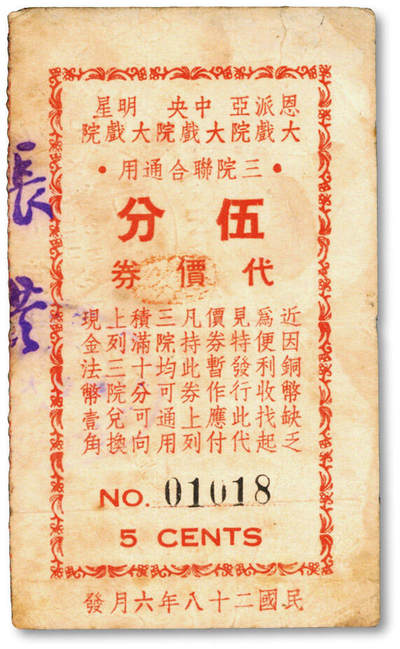 恩派亞 中央 明星
大戲院 大戲院 大戲院
•三院聯合通用•
伍分
代價券
近因銅幣缺乏
為便利收找起
見特發行此代
價券暫作應付
凡持此券上列
三院均可通用
積滿十分可向
上列三院兌換
現金法幣壹角
NO. 01018
5 CENTS
民國二十八年六月發